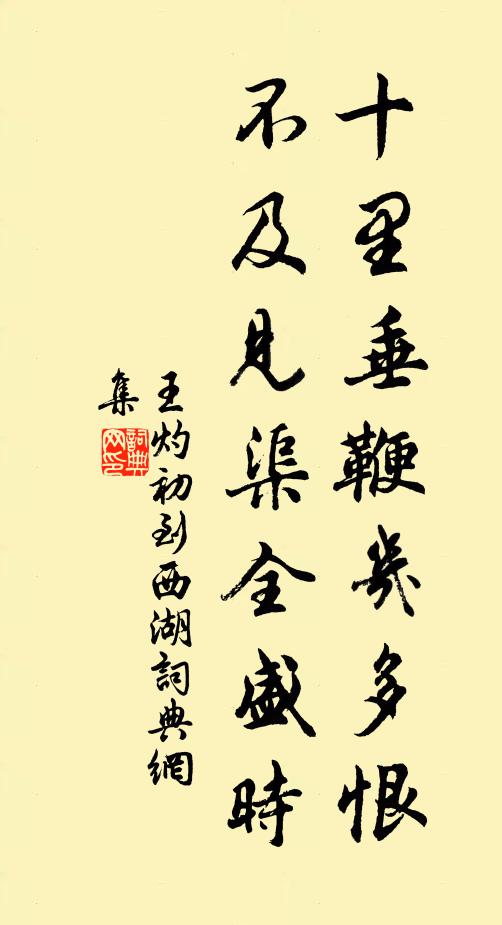 十里垂鞭幾多恨
不及見渠全盛時
王灼初到西湖詞典網
集
詞典網印